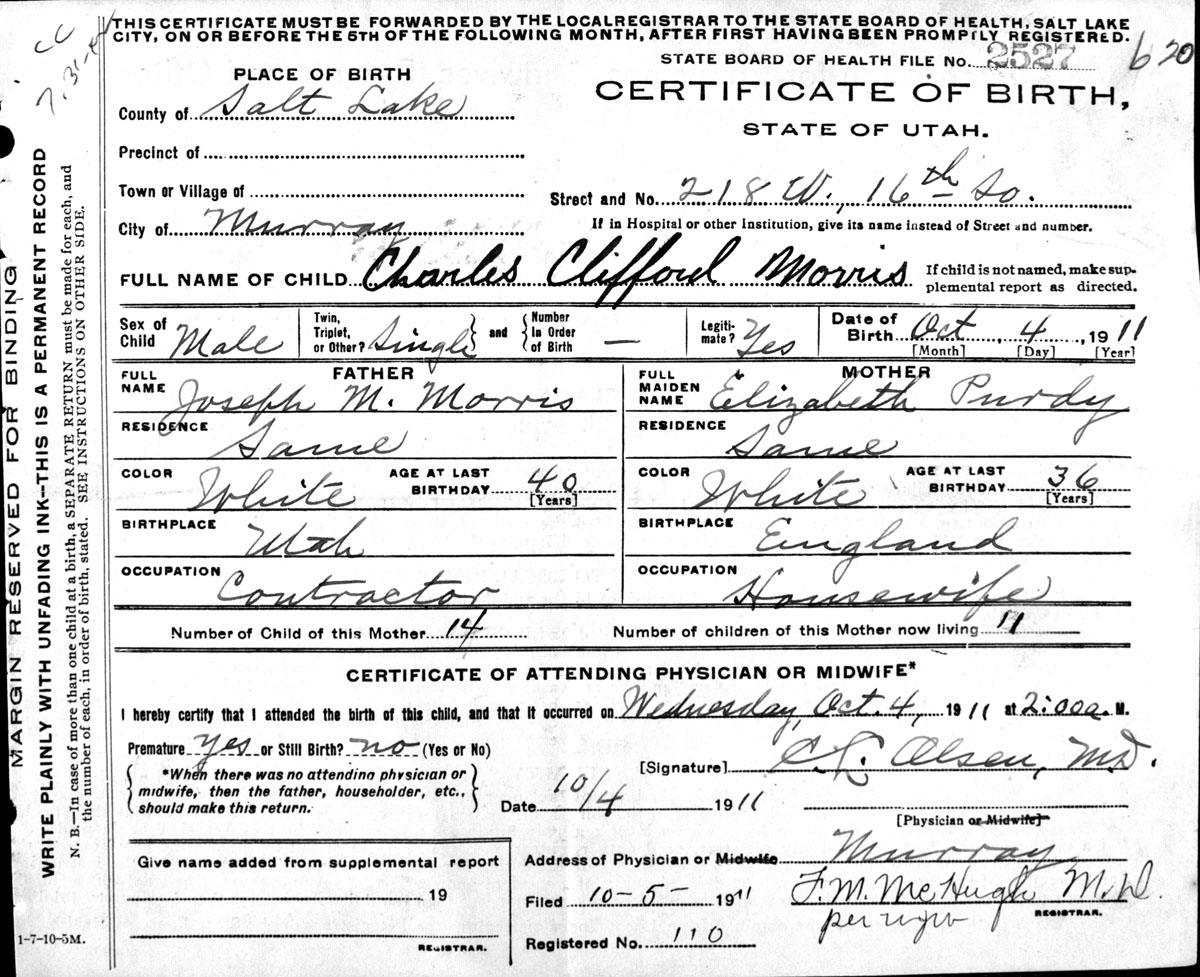 THIS CERTIFICATE MUST BE FORWARDED BY THE LOCAL REGISTRAR TO THE STATE BOARD OF HEALTH, SALT LAKE
CITY, ON OR BEFORE THE 5TH OF THE FOLLOWING MONTH, AFTER FIRST HAVING BEEN PROMPTLY REGISTERED.
STATE BOARD OF HEALTH FILE No. 2527
620
PLACE OF BIRTH
CERTIFICATE OF BIRTH,
STATE OF UTAH.
County of Salt Lake
Precinct of
Town or Village of
Street and No. 218 W., 16th So.
City of Murray
If in Hospital or other Institution, give its name instead of Street and number.
FULL NAME OF CHILD Charles Clifford Morris
If child is not named, make sup-
plemental report as directed.
Sex of Child Male
Twin, Triplet, or Other? Single and Number In Order of Birth —
Legiti-mate? Yes
Date of Birth Oct, 4, 1911
[Month] [Day] [Year]
FATHER
MOTHER
FULL NAME Joseph M. Morris
FULL MAIDEN NAME Elizabeth Purdy
RESIDENCE Same
RESIDENCE Same
COLOR White AGE AT LAST BIRTHDAY 40 [Years]
COLOR White AGE AT LAST BIRTHDAY 36 [Years]
BIRTHPLACE Utah
BIRTHPLACE England
OCCUPATION Contractor
OCCUPATION Housewife
Number of Child of this Mother 14 Number of children of this Mother now living 11
CERTIFICATE OF ATTENDING PHYSICIAN OR MIDWIFE*
I hereby certify that I attended the birth of this child, and that it occurred on Wednesday, Oct. 4, 1911 at 2:00a. M.
Premature yes or Still Birth? no (Yes or No)
*When there was no attending physician or
midwife, then the father, householder, etc.,
should make this return.
[Signature] C. L. Olsen, M.D.
Date 10/4 1911
[Physician or Midwife]
Give name added from supplemental report
19
REGISTRAR.
Address of Physician or Midwife Murray
Filed 10-5- 1911 F. M. McHugh M.D.
per
REGISTRAR.
Registered No. 110
1-7-10-5M.
MARGIN RESERVED FOR BINDING
WRITE PLAINLY WITH UNFADING INK—THIS IS A PERMANENT RECORD
N. B.—In case of more than one child at a birth, a SEPARATE RETURN must be made for each, and
the number of each, in order of birth, stated. SEE INSTRUCTIONS ON OTHER SIDE.
CC